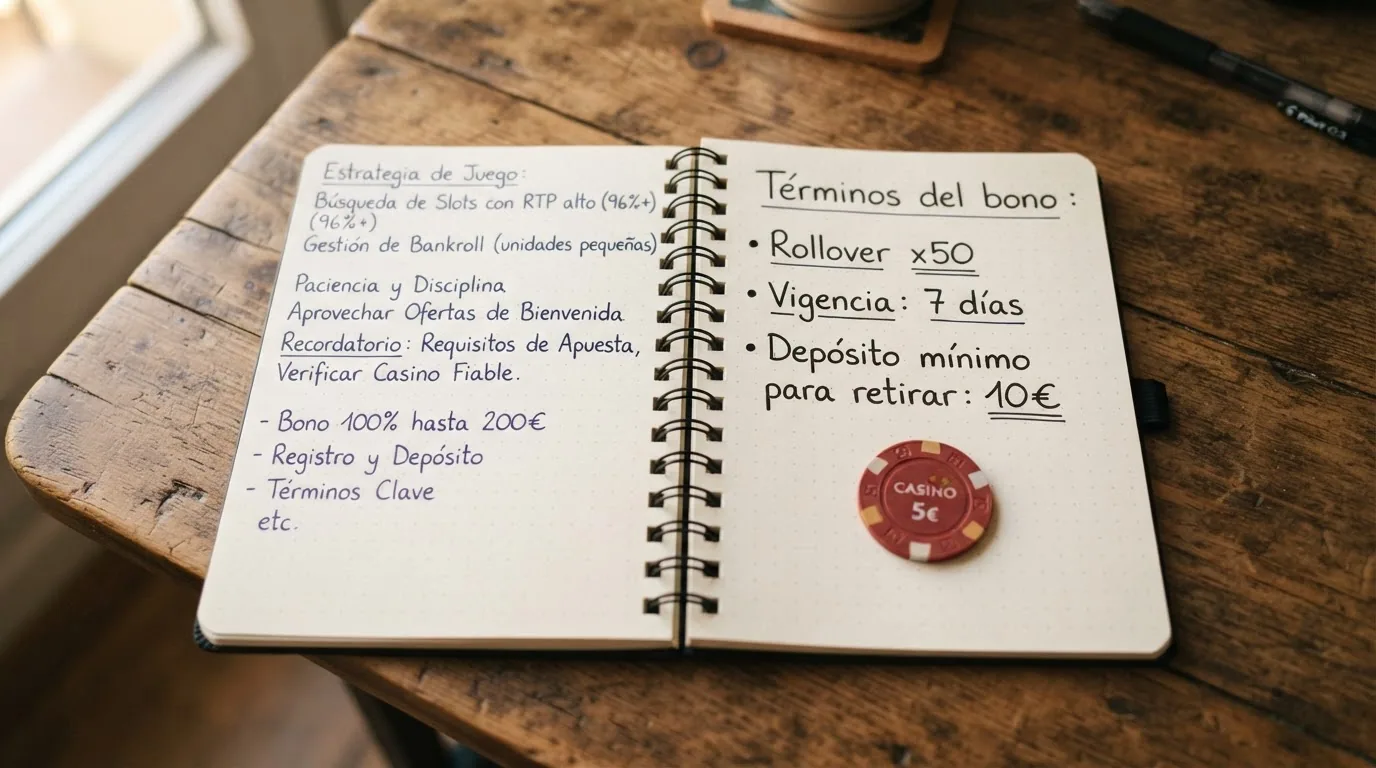 Estrategia de Juego:
Búsqueda de Slots con RTP alto (96%+)
(96%+)
Gestión de Bankroll (unidades pequeñas)
Paciencia y Disciplina
Aprovechar Ofertas de Bienvenida
Recordatorio: Requisitos de Apuesta,
Verificar Casino Fiable.
- Bono 100% hasta 200€
- Registro y Depósito
- Términos Clave
etc.
Términos del bono:
• Rollover x50
• Vigencia: 7 días
• Depósito mínimo
para retirar: 10€
CASINO
5€